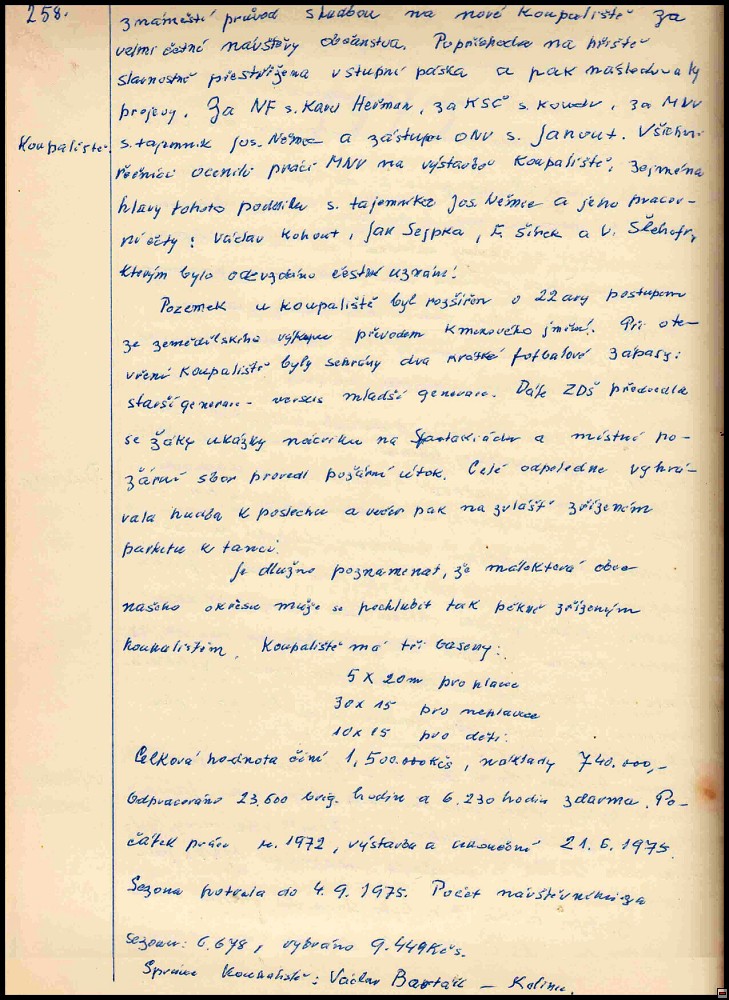 258.
z náměstí průvod s hudbou na nové koupaliště za
velmi četné návštěvy občanstva. Po příchodu na hřiště
slavnostně přestřižena vstupní páska a pak následovaly
projevy. Za NF s. Karel Heřman, za KSČ s. Koudr, za MNV
Koupaliště.
s. tajemník Jos. Němec a zástupce ONV s. Janout. Všichni
řečníci ocenili práci MNV na výstavbě koupaliště, zejména
hlavy tohoto podniku s. tajemníka Jos. Němce a jeho pracov-
ní čety: Václav Kohout, Jan Sejpka, F. Šimek a V. Šlehofr,
kterým bylo odevzdáno čestné uznání.
Pozemek u koupaliště byl rozšířen o 22 ary postupem
ze zemědělského výkupu převodem kmenového jmění. Při ote-
vření koupaliště byly sehrány dva krátké fotbalové zápasy:
starší generace - versus mladší generace. Dále ZDŠ předvedla
se žáky ukázky nácviku na Spartakiádu a místní po-
žární sbor provedl požární útok. Celé odpoledne vyhrá-
vala hudba k poslechu a večer pak na zvlášť zřízeném
parketu k tanci.
Je dlužno poznamenat, že málokterá obec
našeho okresu může se pochlubit tak pěkně zřízeným
koupalištěm. Koupaliště má tři baseny:
5 x 20 m pro plavce
30 x 15 pro neplavce
10 x 15 pro děti.
Celková hodnota činí 1,500.000 Kčs, náklady 740.000,-
Odpracováno 23.600 brig. hodin a 6.230 hodin zdarma. Po-
čátek práce r. 1972, výstavba a ukončení 21. 6. 1975.
Sezona potrvala do 4. 9. 1975. Počet návštěvníků za
sezonu: 6.678, vybráno 9.449 Kčs.
Správce koupaliště: Václav Barták - Kolinec.